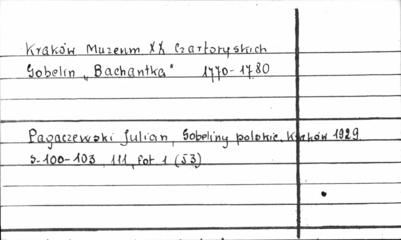 Kraków Muzeum XX Czartoryskich
Gobelin „Bachantka" 1770-1780
Pagaczewski Julian, Gobeliny polskie, Kraków 1929
s-100-103, 111, fot 1 (53)